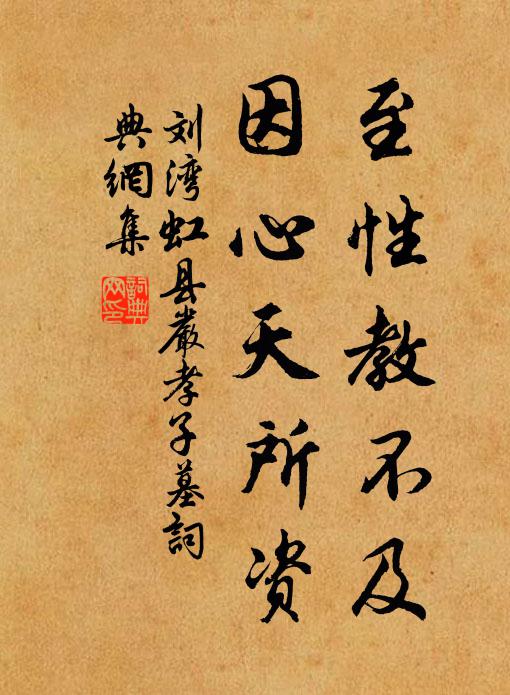 至性教不及
因心天所资
刘湾虹县嚴孝子墓詞
典網集
詞典
网印